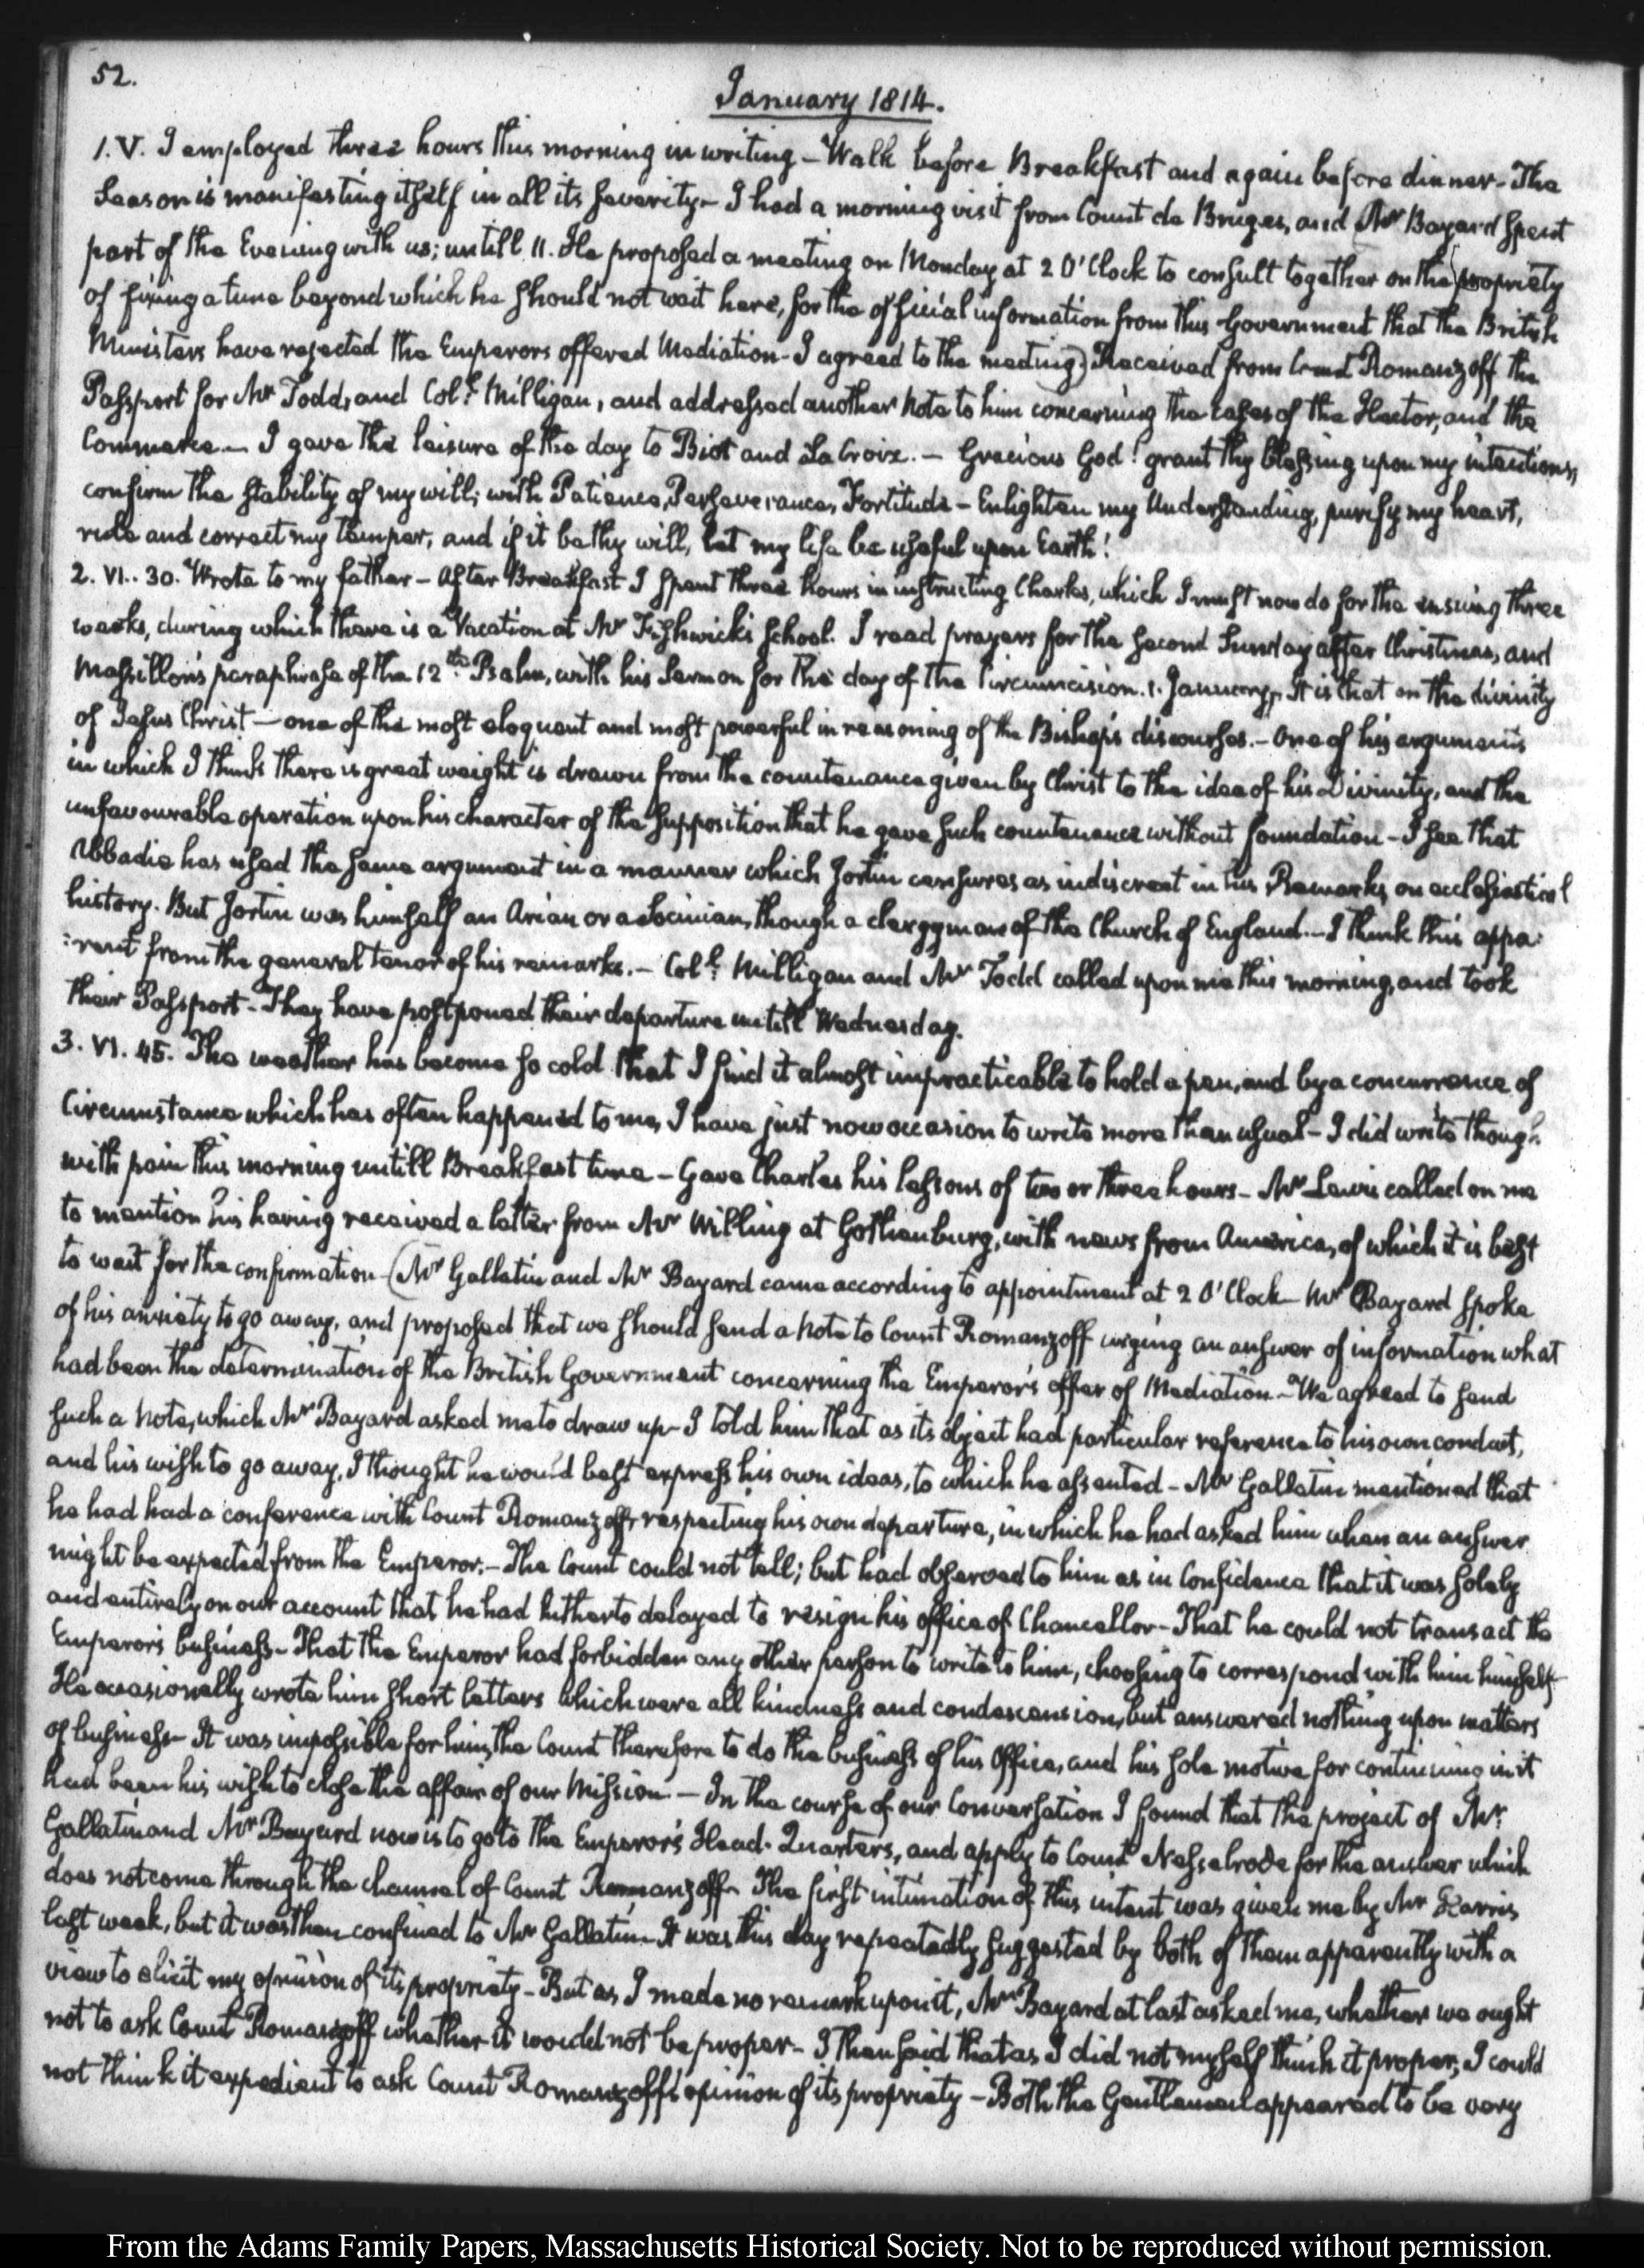 52.
January 1814.
1. V. I employed three hours this morning in writing – Walk before Breakfast and again before dinner – The
Season is manifesting itself in all its severity – I had a morning visit from Count de Bruges, and Mr Bayard spent
part of the Evening with us; untill 11. He proposed a meeting on Monday at 2 O'Clock to consult together on the propriety
of fixing a time beyond which he should not wait here, for the official information from this Government that the British
Ministers have rejected the Emperors offered Mediation – I agreed to the meeting) Received from Count Romanzoff the
Passport for Mr Todd, and Coll. Milligan, and addressed another Note to him concerning the cases of the Hector, and the
Commerce. – I gave the leisure of the day to Biot and La Croix. – Gracious God! grant thy blessing upon my intentions;
confirm the stability of my will; with Patience, Perseverance, Fortitude – Enlighten my Understanding, purify my heart,
rule and correct my temper, and if it be thy will, let my life be useful upon Earth!
2. VI. 30. Wrote to my father – After Breakfast I spent three hours in instructing Charles, which I must now do for the ensuing three
weeks, during which there is a Vacation at Mr Fishwick's school. I read prayers for the second Sunday after Christmas, and
Massillon's paraphrase of the 12th. Psalm, with his Sermon for the day of the Circumcision. 1. January. It is that on the divinity
of Jesus Christ – one of the most eloquent and most powerful in reasoning of the Bishop's discourses. – One of his arguments
in which I think there is great weight is drawn from the countenance given by Christ to the idea of his Divinity, and the
unfavourable operation upon his character of the supposition that he gave such countenance without foundation – I see that
Abbadie has used the same argument in a manner which Jortin censures as indiscreet in his Remarks on ecclesiastical
history. But Jortin was himself an Arian or a Socinian, though a clergyman of the Church of England. – I think this appa:
:rent from the general tenor of his remarks. – Coll. Milligan and Mr Todd called upon me this morning, and took
their Passport – They have postponed their departure untill Wednesday.
3. VI. 45. The weather has become so cold that I find it almost impracticable to hold a pen, and by a concurrence of
Circumstance which has often happened to me, I have just now occasion to write more than usual – I did write though
with pain this morning untill Breakfast time – Gave Charles his lessons of two or three hours – Mr Lewis called on me
to mention his having received a letter from Mr Willing at Gothenburg, with news from America, of which it is best
to wait for the confirmation – (Mr Gallatin and Mr Bayard came according to appointment at 2 O'Clock – Mr Bayard spoke
of his anxiety to go away, and proposed that we should send a Note to Count Romanzoff urging an answer of information what
had been the determination of the British Government concerning the Emperor's offer of Mediation – We agreed to send
such a Note, which Mr Bayard asked me to draw up – I told him that as its object had particular reference to his own conduct,
and his wish to go away, I thought he would best express his own ideas, to which he assented – Mr Gallatin mentioned that
he had had a conference with Count Romanzoff, respecting his own departure, in which he had asked him when an answer
might be expected from the Emperor. – The Count could not tell; but had observed to him as in Confidence that it was solely
and entirely on our account that he had hitherto delayed to resign his office of Chancellor – That he could not transact the
Emperor's business – That the Emperor had forbidden any other person to write to him, choosing to correspond with him himself
He occasionally wrote him short letters which were all kindness and condescension, but answered nothing upon matters
of business – It was impossible for him, the Count therefore to do the business of his Office, and his sole motive for continuing in it
had been his wish to close the affair of our Mission – In the course of our Conversation I found that the project of Mr
Gallatin and Mr Bayard now is to go to the Emperor's Head-Quarters, and apply to Count Nesselrode for the answer which
does not come through the channel of Count Romanzoff – The first intimation of this intent was given me by Mr Harris
last week, but it was then confined to Mr Gallatin – It was this day repeatedly suggested by both of them apparently with a
view to elicit my opinion of its propriety – But as I made no remark upon it, Mr Bayard at last asked me, whether we ought
not to ask Count Romanzoff whether it would not be proper – I then said that as I did not myself think it proper, I could
not think it expedient to ask Count Romanzoff's opinion of its propriety – Both the Gentlemen appeared to be very
From the Adams Family Papers, Massachusetts Historical Society. Not to be reproduced without permission.